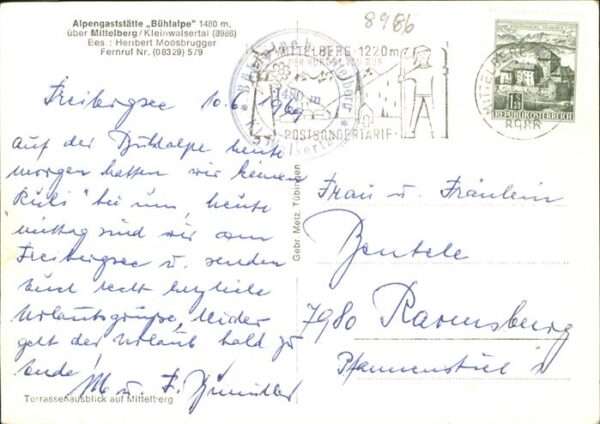 Alpengaststätte „Bühlalpe" 1480 m,
über Mittelberg/Kleinwalsertal (8986)
Bes.: Heribert Moosbrugger
Fernruf Nr. (08329) 579
8986
MITTELBERG 1220m
POSTSONDERTARIF
1480 m
REPUBLIK ÖSTERREICH
Freibergsee 10.6.1969
Auf der Bühlalpe heute
morgen hatten wir keinen
bei uns, heute
mittag sind wir am
Freibergsee u. senden
Euch recht herzliche
Urlaubsgrüsse, leider
geht der Urlaub bald zu
ende!
M u. F.
Gebr. Metz, Tübingen
Frau u. Fräulein
Bentele
7980 Ravensburg
Pfannenstiel
Terrassenausblick auf Mittelberg